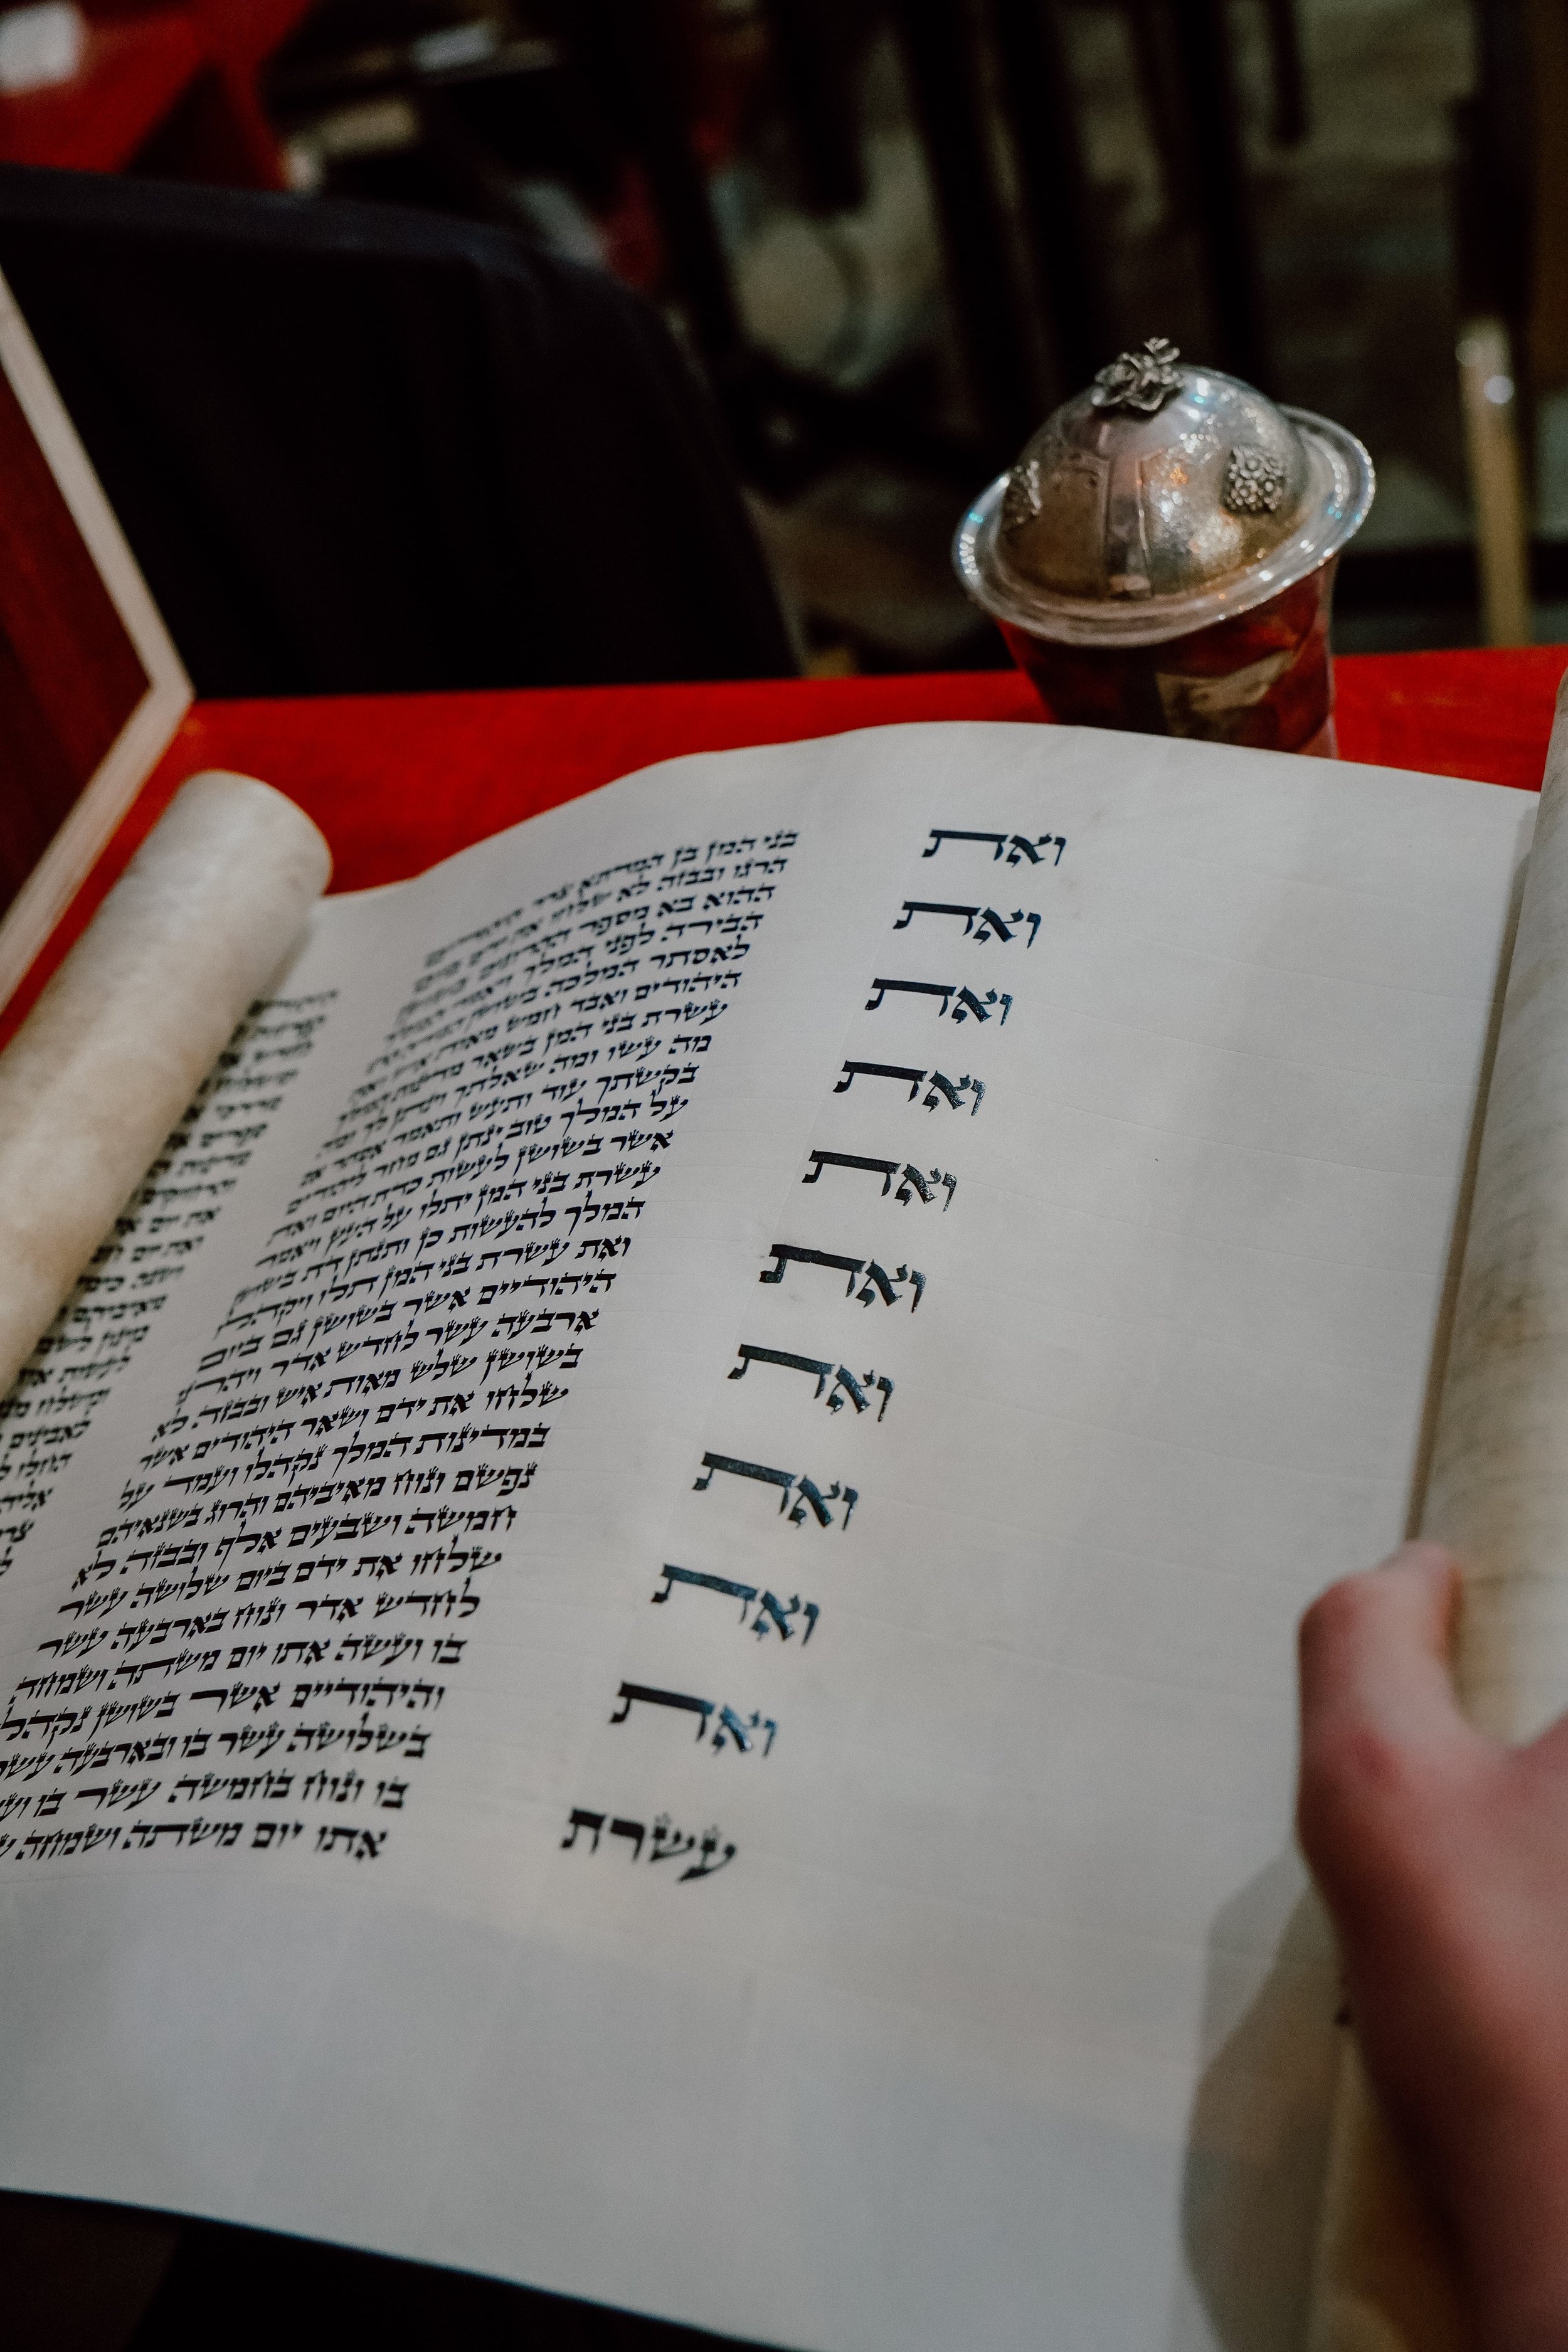 ואת
ואת
ואת
ואת
ואת
ואת
ואת
ואת
ואת
ואת
עשרת
בני המן בן המדתא צרר היהודים
הרגו ובבזה לא שלחו את ידם ביום
ההוא בא מספר ההרוגים בשושן
הבירה לפני המלך ויאמר המלך
לאסתר המלכה בשושן הבירה הרגו
היהודים ואבד חמש מאות איש ואת
עשרת בני המן בשאר מדינות המלך
מה עשו ומה שאלתך וינתן לך ומה
בקשתך עוד ותעש ותאמר אסתר אם
על המלך טוב ינתן גם מחר ליהודים
אשר בשושן לעשות כדת היום ואת
עשרת בני המן יתלו על העץ ויאמר
המלך להעשות כן ותנתן דת בשושן
ואת עשרת בני המן תלו ויקהלו
היהודיים אשר בשושן גם ביום
ארבעה עשר לחדש אדר ויהרגו
בשושן שלש מאות איש ובבזה לא
שלחו את ידם ושאר היהודים אשר
במדינות המלך נקהלו ועמד על
נפשם ונוח מאיביהם והרוג בשנאיהם
חמשה ושבעים אלף ובבזה לא
שלחו את ידם ביום שלושה עשר
לחדש אדר ונוח בארבעה עשר
בו ועשה אתו יום משתה ושמחה
והיהודיים אשר בשושן נקהלו
בשלושה עשר בו ובארבעה עשר
בו ונוח בחמשה עשר בו
אתו יום משתה ושמחה